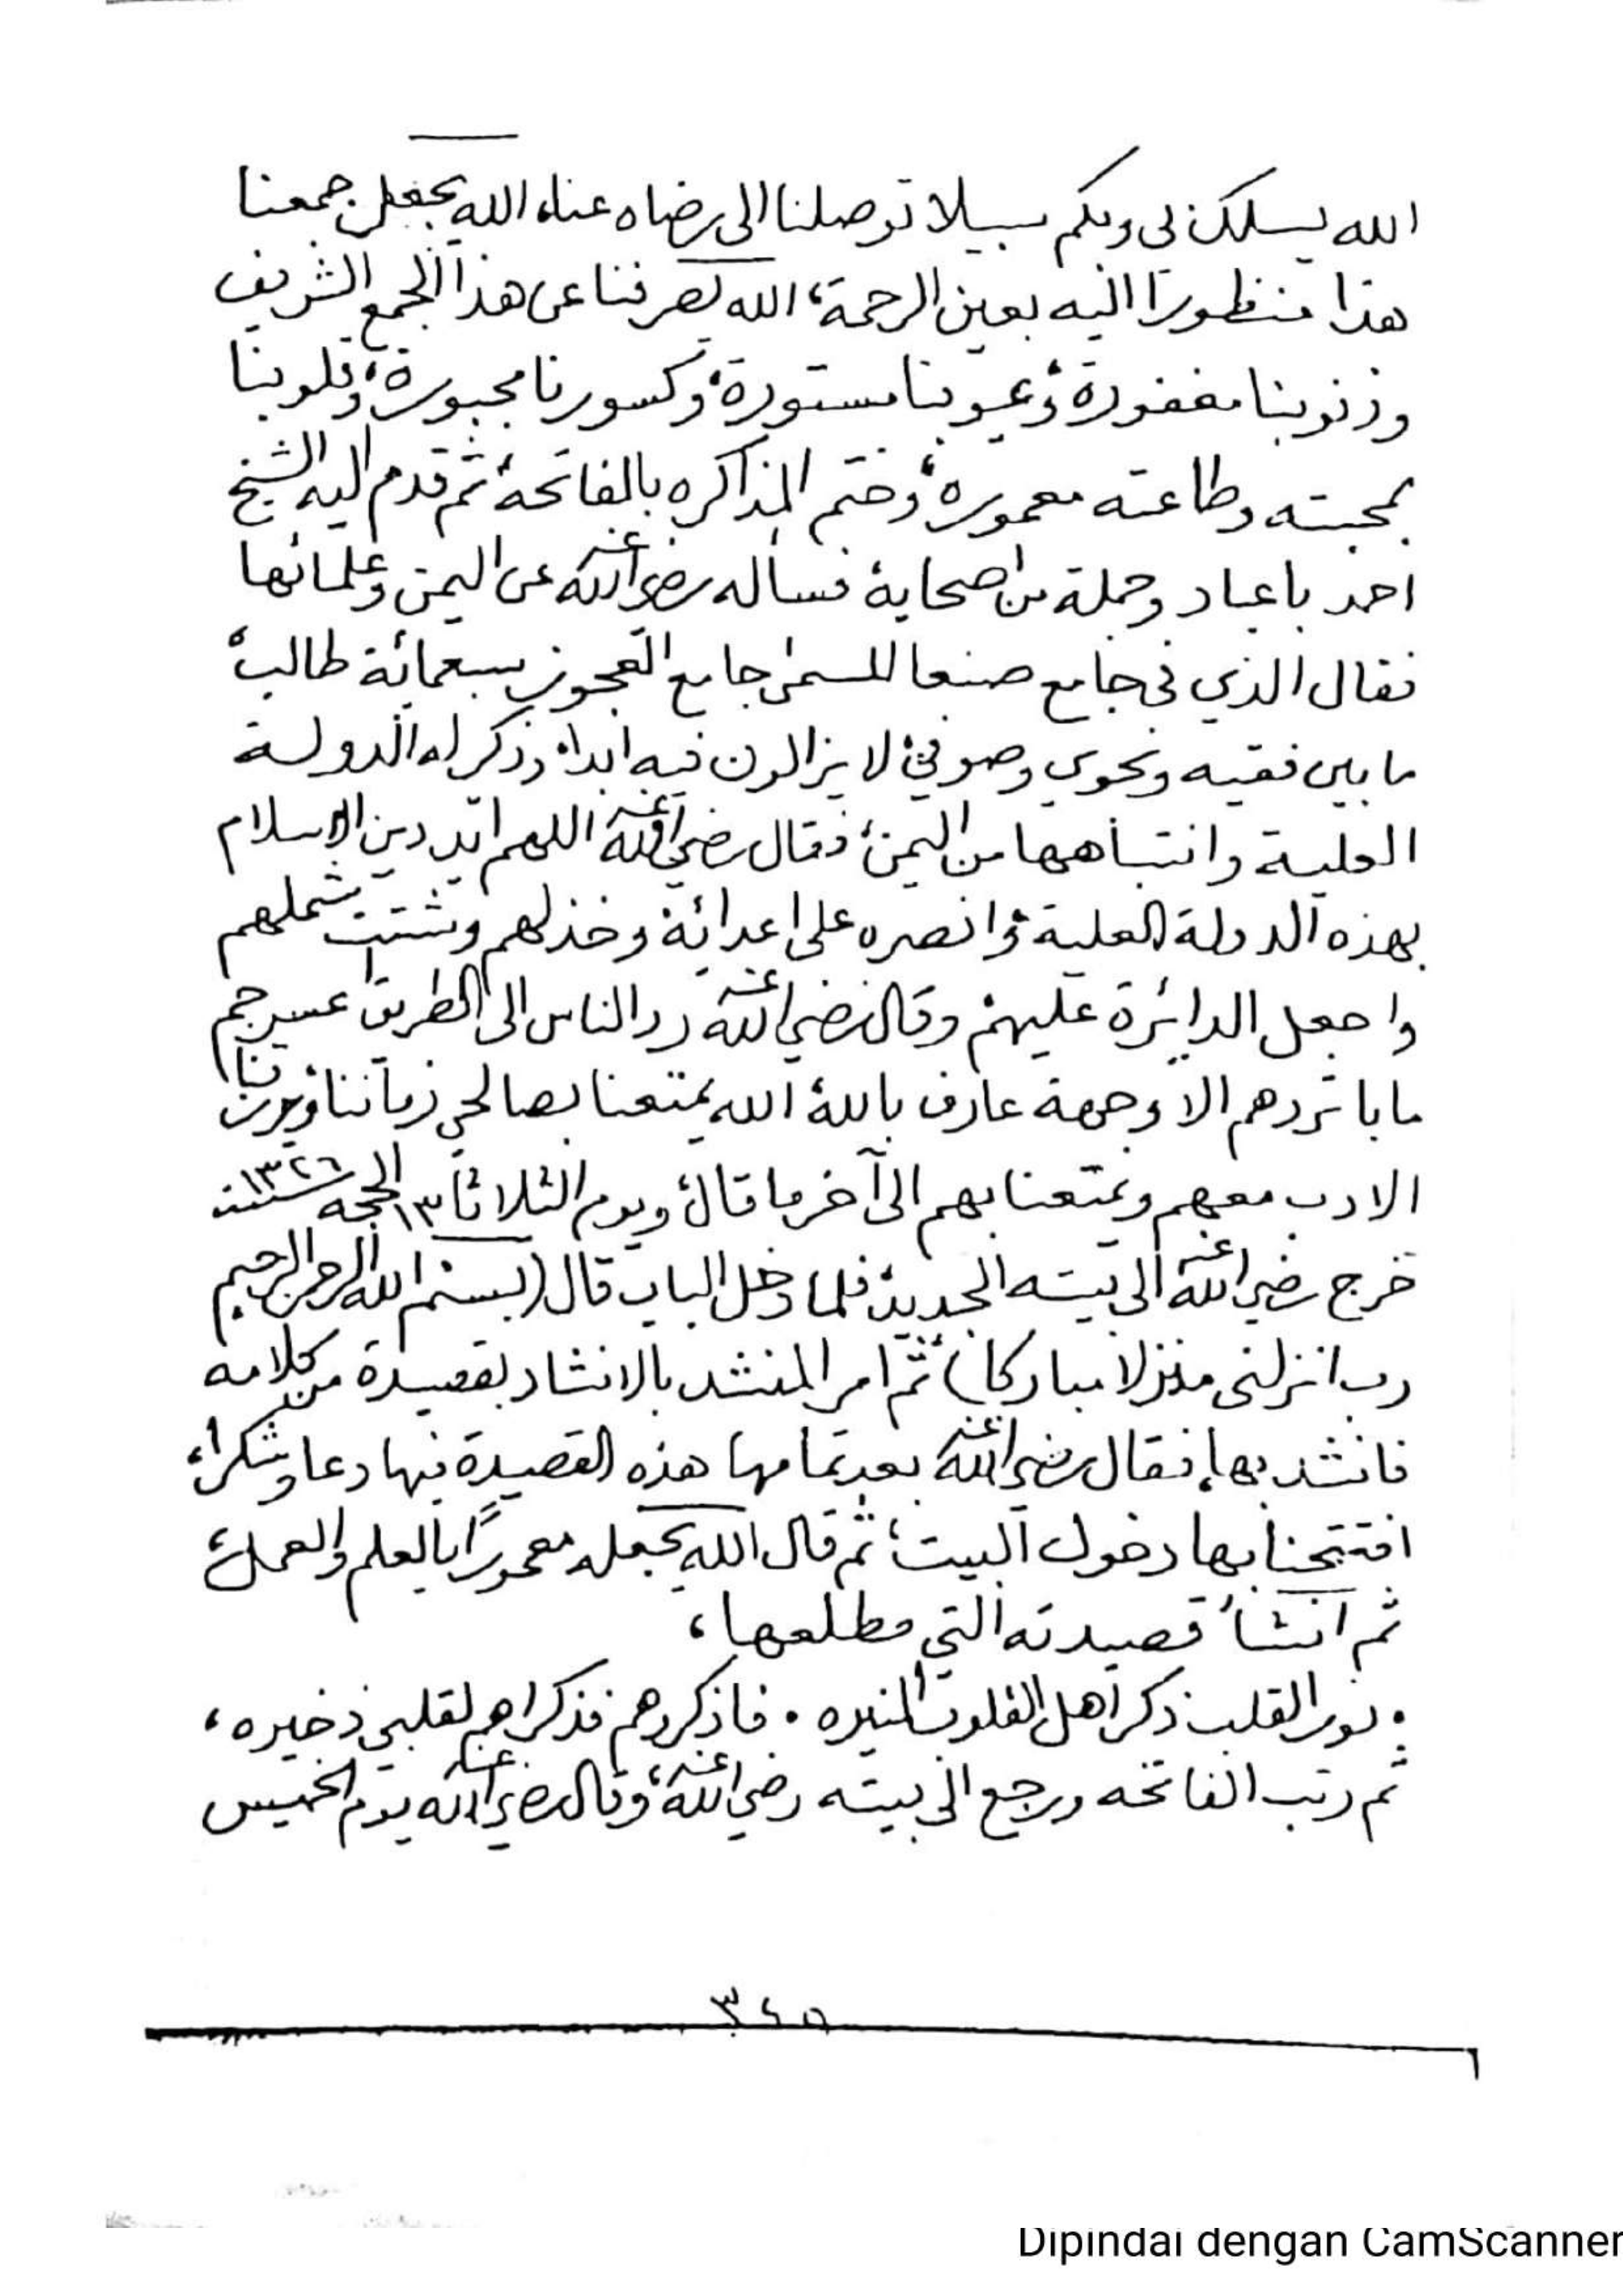 الله يسلك بي وبكم سبيلا توصلنا الى رضاه عناء الله يجعل جمعنا
هذا منظورا اليه بعين الرحمة، الله يصرفنا عن هذا الجمع الشريف
وذنوبنا مغفورة، وعيوبنا مستورة، وكسورنا مجبورة، وقلوبنا
بمحبته وطاعته معموره، وختم المذاكره بالفاتحة، ثم قدم اليه الشيخ
احمد باعباد وجملة من اصحابة فساله رضي الله عنه عن اليمن وعلمائها
فقال الذي في جامع صنعا للسمى جامع العجوز سبعمائة طالب،
ما بين فقيه ونحوي وصوفي، لا يزالون فيه ابدا، وذكر له الدولة
العلية وانتباهها من اليمن، فقال رضي الله عنه اللهم ايد دين الاسلام
بهذه الدولة العلية، وانصره على اعدائة وخذلهم وشتت شملهم
واجعل الدائرة عليهم، وقال رضي الله عنه رد الناس الى الطريق عسر جم
ما با تردهم الا وجهة عارف بالله، الله يمتعنا بصالحي زماننا ويرزقنا
الادب معهم ويمتعنا بهم الى آخر ما قال، ويوم الثلاثا ١٣ الحجه سنة ١٣٢٦
خرج رضي الله عنه الى بيته الجديد، فلما دخل الباب قال (بسم الله الرحمن الرحيم
رب انزلني منزلا مباركا) ثم امر المنشد بالانشاد بقصيدة من كلامه
فانشد بها، فقال رضي الله عنه بعد تمامها هذه القصيدة فيها دعا وشكرا،
افتتحنا بها دخول البيت، ثم قال الله يجعله معمورًا بالعلم والعمل،
ثم انشأ قصيدته التي مطلعها،
نور القلب ذكر اهل القلوب المنيره . فاذكروهم فذكراهم لقلبي ذخيره،
ثم رتب الفاتحه ورجع الى بيته رضي الله عنه، وقال رضي الله عنه يوم الخميس
٣٤٥
Dipindai dengan CamScanner